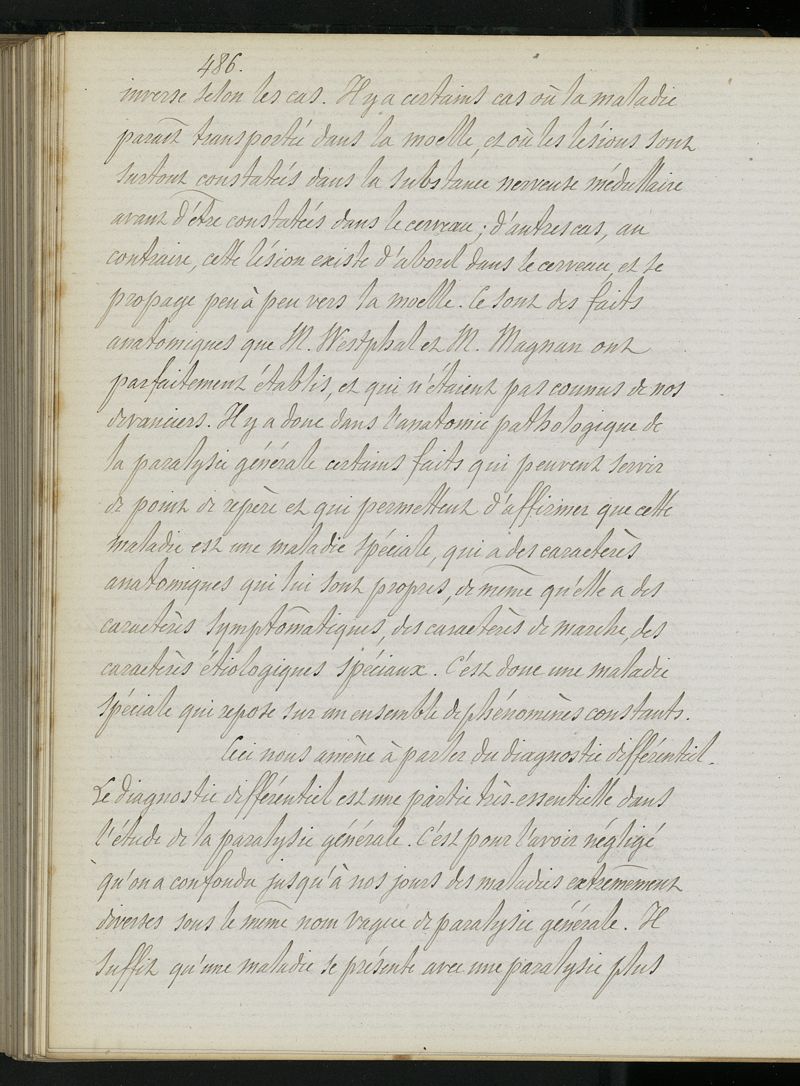 486.
inverse selon les cas. Il y a certains cas où la maladie
parait transportée dans la moelle, et où les lésions sont
surtout constatées dans la substance nerveuse médullaire
avant d'être constatées dans le cerveau ; d'autres cas, au
contraire, cette lésion existe d'abord dans le cerveau, et se
propage peu à peu vers la moelle. Ce sont des faits
anatomiques que M. Westphal et M. Magnan ont
parfaitement établis, et qui n'étaient pas connus de nos
devanciers. Il y a donc dans l'anatomie pathologique de
la paralysie générale certains faits qui peuvent servir
de point de repère et qui permettent d'affirmer que cette
maladie est une maladie spéciale, qui a des caractères
anatomiques qui lui sont propres, de même qu'elle a des
caractères symptômatiques, des caractères de marche, des
caractères étiologiques spéciaux. C'est donc une maladie
spéciale qui repose sur un ensemble de phénomènes constants.
Ceci nous amène à parler du diagnostic différentiel.
Le diagnostic différentiel est une partie très-essentielle dans
l'étude de la paralysie générale. C'est pour l'avoir négligé
qu'on a confondu jusqu'à nos jours des maladies extrêmement
diverses sous le même nom vague de paralysie générale. Il
suffit qu'une maladie se présente avec une paralysie plus